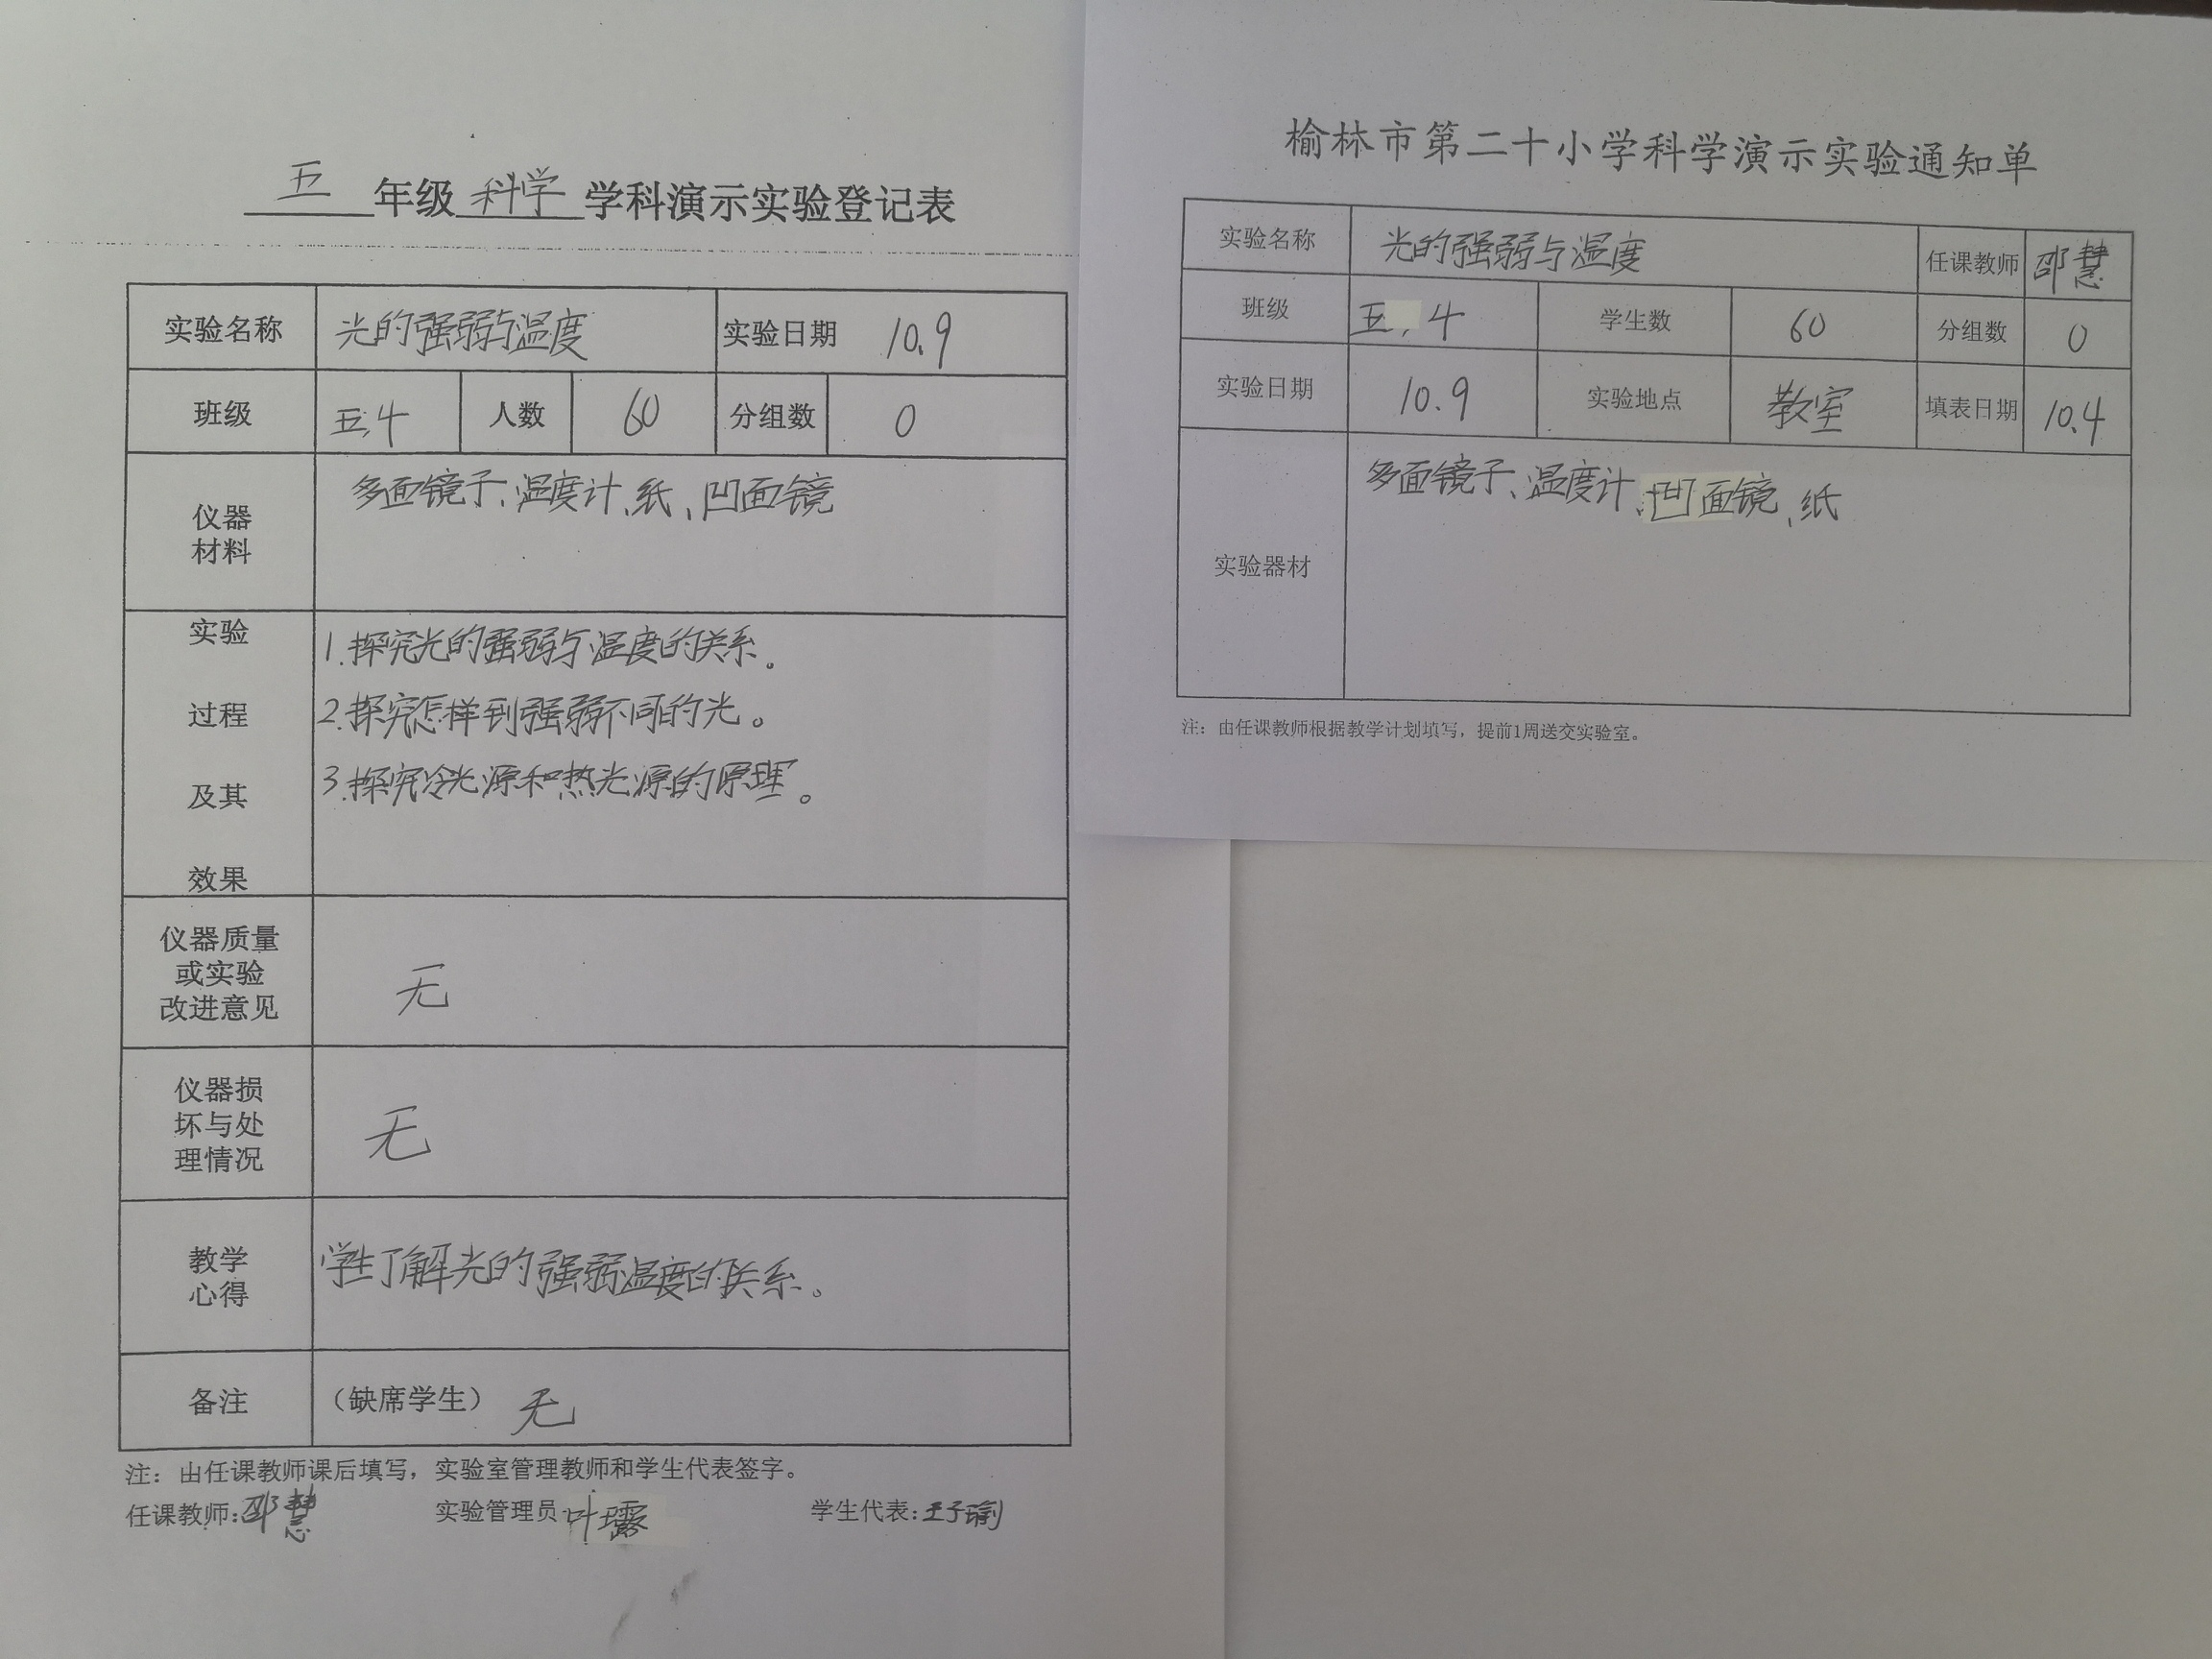 五年级科学学科演示实验登记表
实验名称 光的强弱与温度 实验日期 10.9
班级 五.4 人数 60 分组数 0
仪器
材料
多面镜子、温度计、纸、凹面镜
实验
过程
及其
效果
1.探究光的强弱与温度的关系。
2.探究怎样到强弱不同的光。
3.探究冷光源和热光源的原理。
仪器质量
或实验
改进意见
无
仪器损
坏与处
理情况
无
教学
心得
学生了解光的强弱温度的关系。
备注 （缺席学生） 无
注：由任课教师课后填写，实验室管理教师和学生代表签字。
任课教师：邵慧 实验管理员 叶 学生代表：王子瑜
榆林市第二十小学科学演示实验通知单
实验名称 光的强弱与温度 任课教师 邵慧
班级 五.4 学生数 60 分组数 0
实验日期 10.9 实验地点 教室 填表日期 10.4
实验器材 多面镜子、温度计、凹面镜、纸
注：由任课教师根据教学计划填写，提前1周送交实验室。